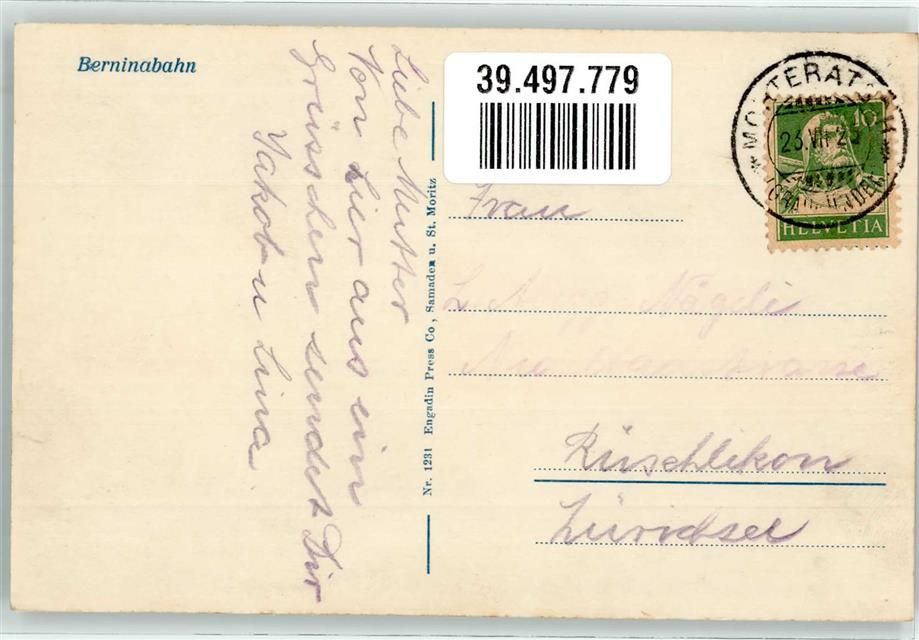 Berninabahn
Liebe Mutter
Von hier aus ein
Grüsschen sendet Dir
Jakob u Lina
Nr. 1231 Engadin Press Co, Samaden u. St. Moritz
39.497.779
MORTERATSCH
23.VII.2
(GRAUBÜNDEN)
10
HELVETIA
Frau
Nägeli
Rüschlikon
Zürichsee